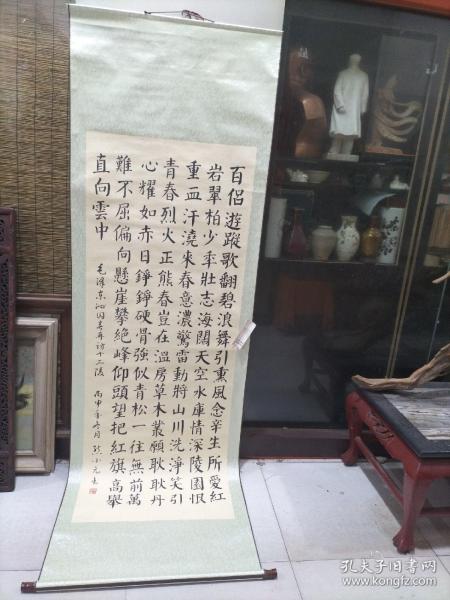 百侣遊蹤歌翻碧浪舞引熏風念辛生所愛紅
岩翠柏少年壯志海闊天空水庫情深陵園恨
重血汗澆來春意濃驚雷動將山川洗淨笑引
青春烈火正熊春豈在溫房草木叢願耿耿丹
心耀如赤日錚錚硬骨強似青松一往無前萬
難不屈偏向懸崖攀絕峰仰頭望把紅旗高舉
直向雲中
毛澤東沁园春再访十三陵 丙申年冬月
孔夫子旧书网
www.kongfz.com